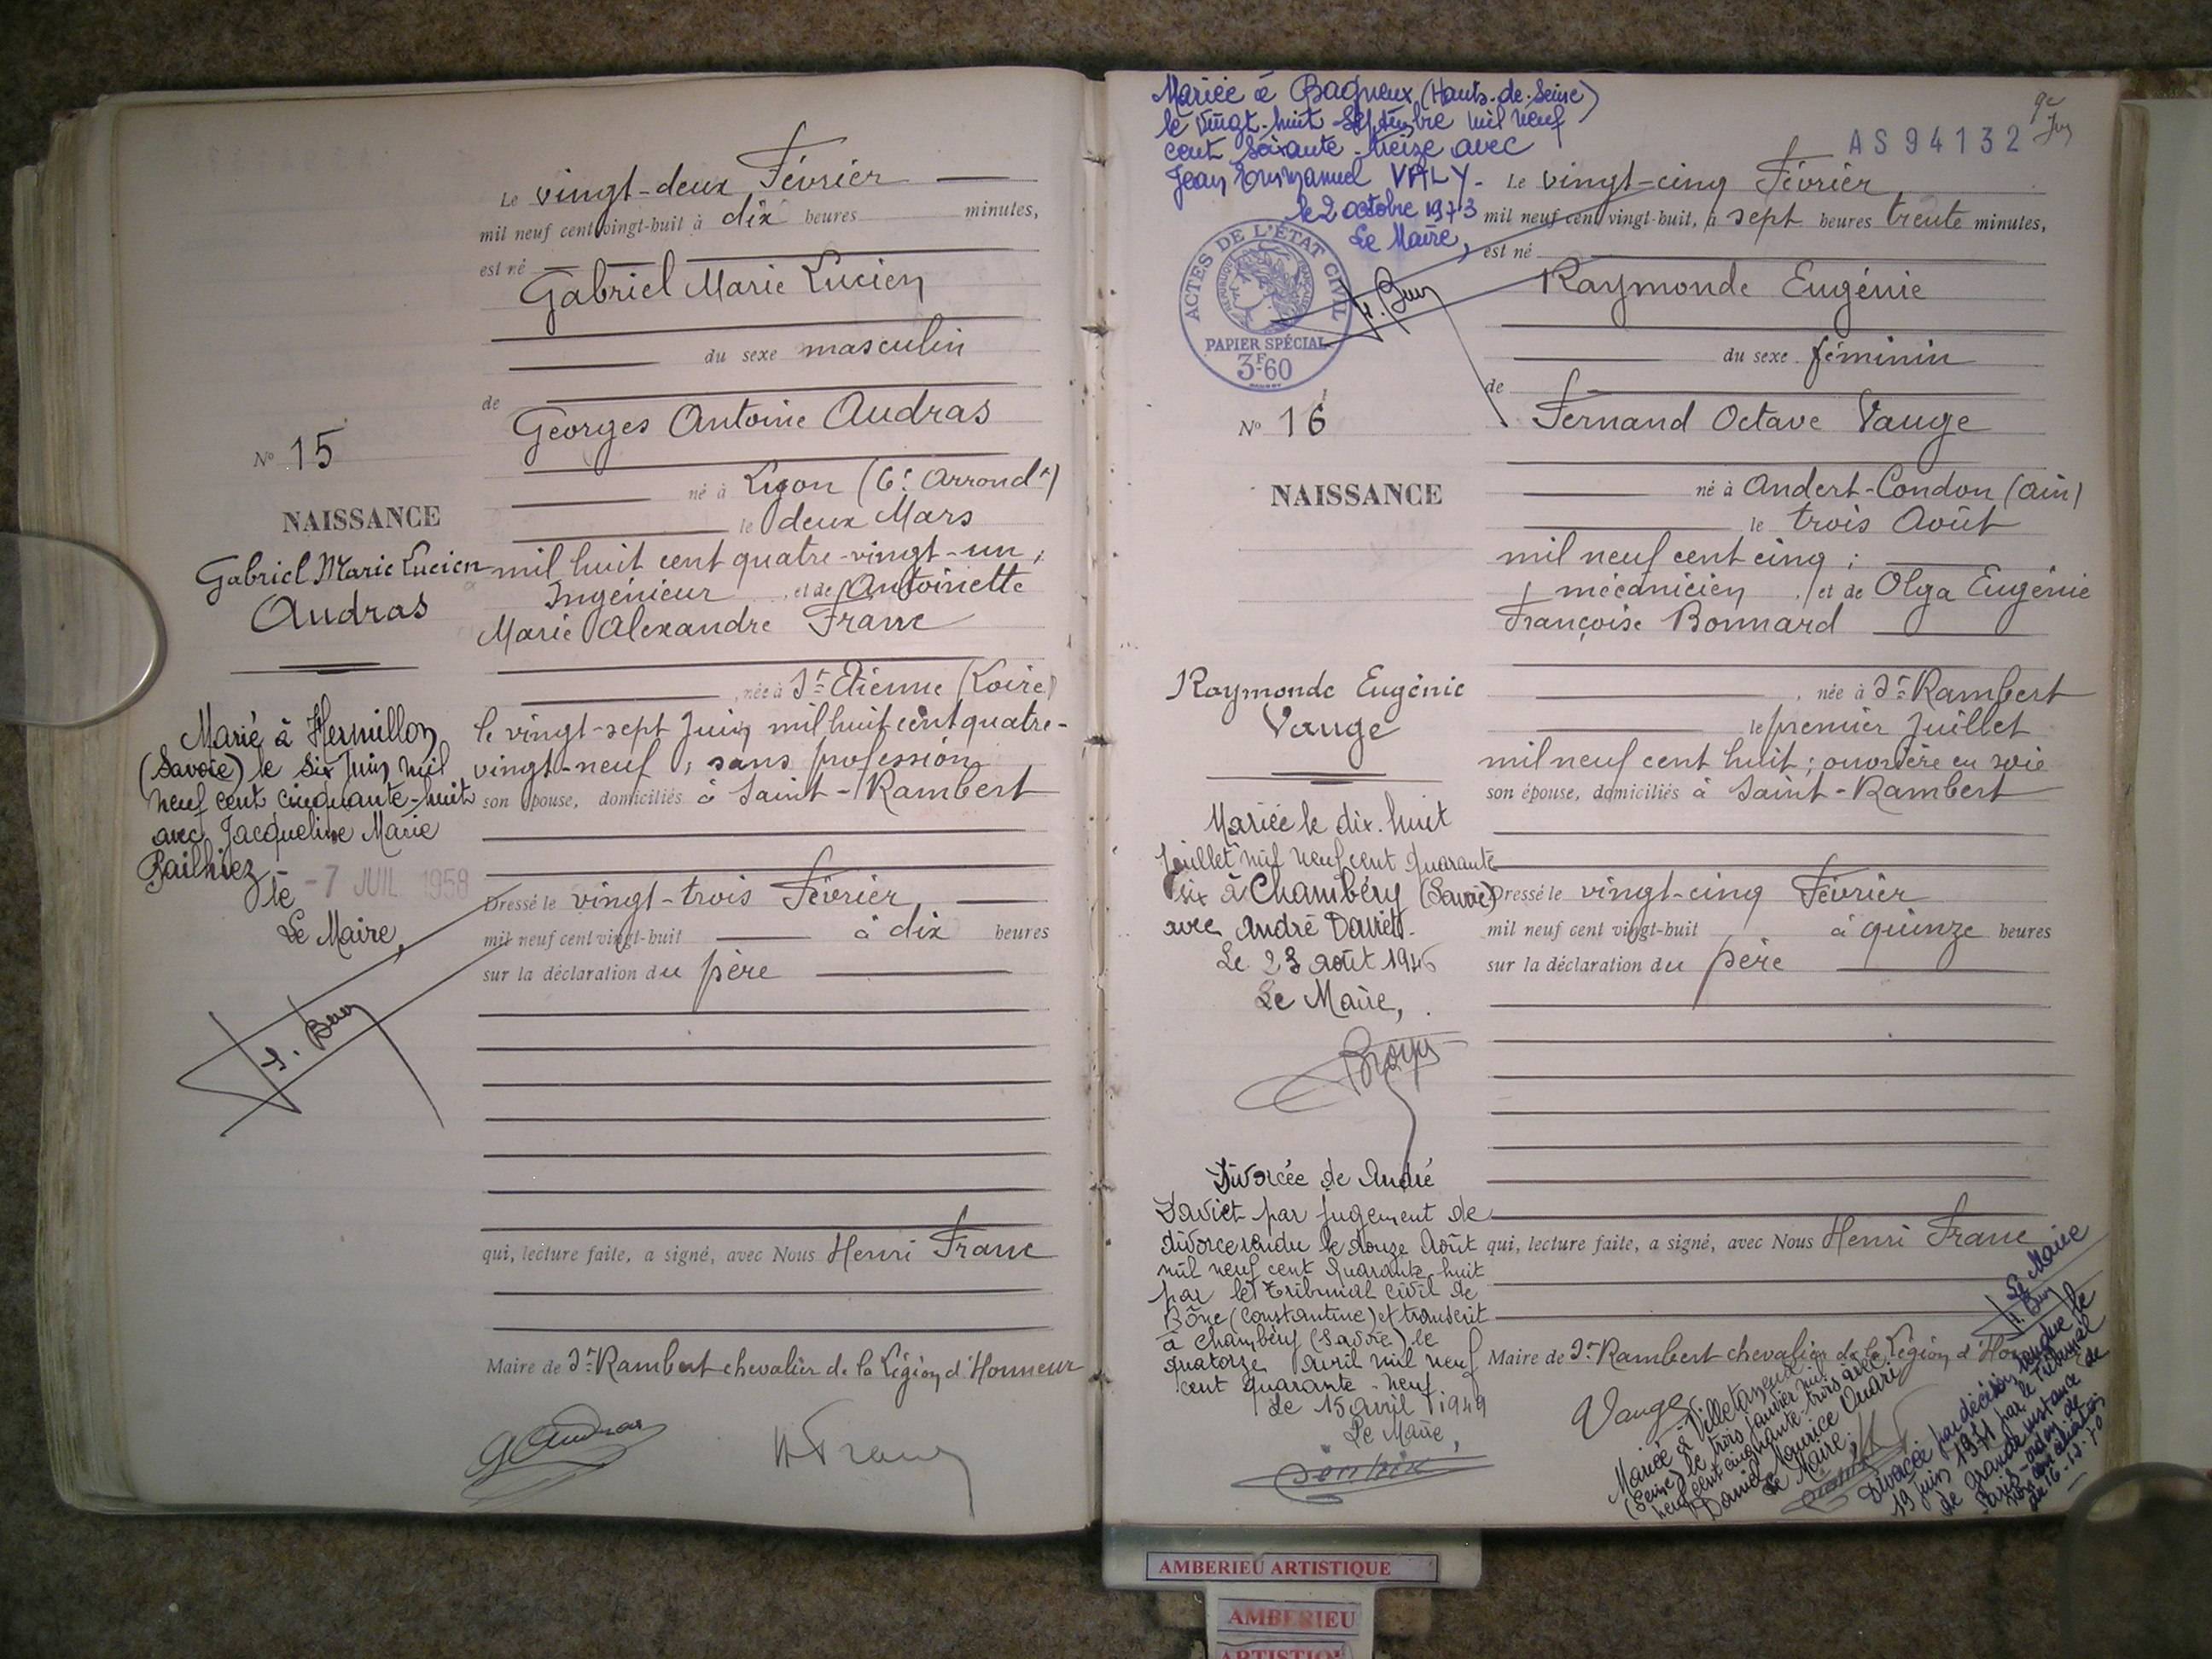 Le vingt-deux Février
mil neuf cent vingt-huit à dix heures minutes,
est né
Gabriel Marie Lucien
du sexe masculin
de
Georges Antoine Audras
né à Lyon (6e Arrondt)
le deux Mars
mil huit cent quatre-vingt-un ;
Ingénieur , et de Antoinette
Marie Alexandre Franc
, née à St Etienne (Loire)
le vingt-sept Juin mil huit cent quatre-
vingt-neuf ; sans profession
son épouse, domiciliés à Saint-Rambert
Dressé le vingt-trois Février
mil neuf cent vingt-huit à dix heures
sur la déclaration du père
qui, lecture faite, a signé, avec Nous Henri Franc
Maire de St Rambert chevalier de la Légion d'Honneur
G Audras
H Franc
No 15
NAISSANCE
Gabriel Marie Lucien
Audras
Marié à Hermillon
(Savoie) le six Juin mil
neuf cent cinquante-huit
avec Jacqueline Marie
Bailhiez
le -7 JUIL 1958
Le Maire,
Mariée à Bagneux (Hauts-de-Seine)
le vingt-huit Septembre mil neuf
cent soixante-treize avec
Jean Emmanuel VALY-
le 2 octobre 1973
Le Maire,
ACTES DE L'ÉTAT CIVIL
RÉPUBLIQUE FRANÇAISE
PAPIER SPÉCIAL
3F60
AS 94132
No 16
NAISSANCE
Raymonde Eugénie
Vauge
Mariée le dix-huit
Juillet mil neuf cent quarante
six à Chambéry (Savoie)
avec André Daviet.
Le 23 août 1946
Le Maire,
Divorcée de André
Daviet par jugement de
divorce rendu le douze Août
mil neuf cent quarante huit
par le Tribunal civil de
Bône (Constantine) et transcrit
à Chambéry (Savoie) le
quatorze avril mil neuf
cent quarante-neuf
Le 15 avril 1949
Le Maire,
Le vingt-cinq Février
mil neuf cent vingt-huit, à sept heures trente minutes,
est né
Raymonde Eugénie
du sexe féminin
de
Fernand Octave Vauge
né à Andert-Condon (Ain)
le trois Août
mil neuf cent cinq ;
mécanicien , et de Olga Eugénie
Françoise Bonnard
, née à St Rambert
le premier Juillet
mil neuf cent huit ; ouvrière en soie
son épouse, domiciliés à Saint-Rambert
Dressé le vingt-cinq Février
mil neuf cent vingt-huit à quinze heures
sur la déclaration du père
qui, lecture faite, a signé, avec Nous Henri Franc
Maire de St Rambert chevalier de la Légion d'Hon
Vauge
Mariée à Villetaneuse
(Seine) le trois janvier mil
neuf cent cinquante-trois avec
Daniel Maurice
Le Maire,
Divorcée par décision rendue le
19 juin 1971 par le Tribunal
de grande instance de
Paris - ordon. de
non conciliation
du 16-12-70
Le Maire
AMBERIEU ARTISTIQUE
AMBERIEU
ARTISTIQUE